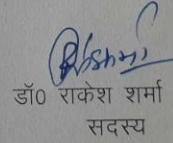 डॉ0 राकेश शर्मा
सदस्य